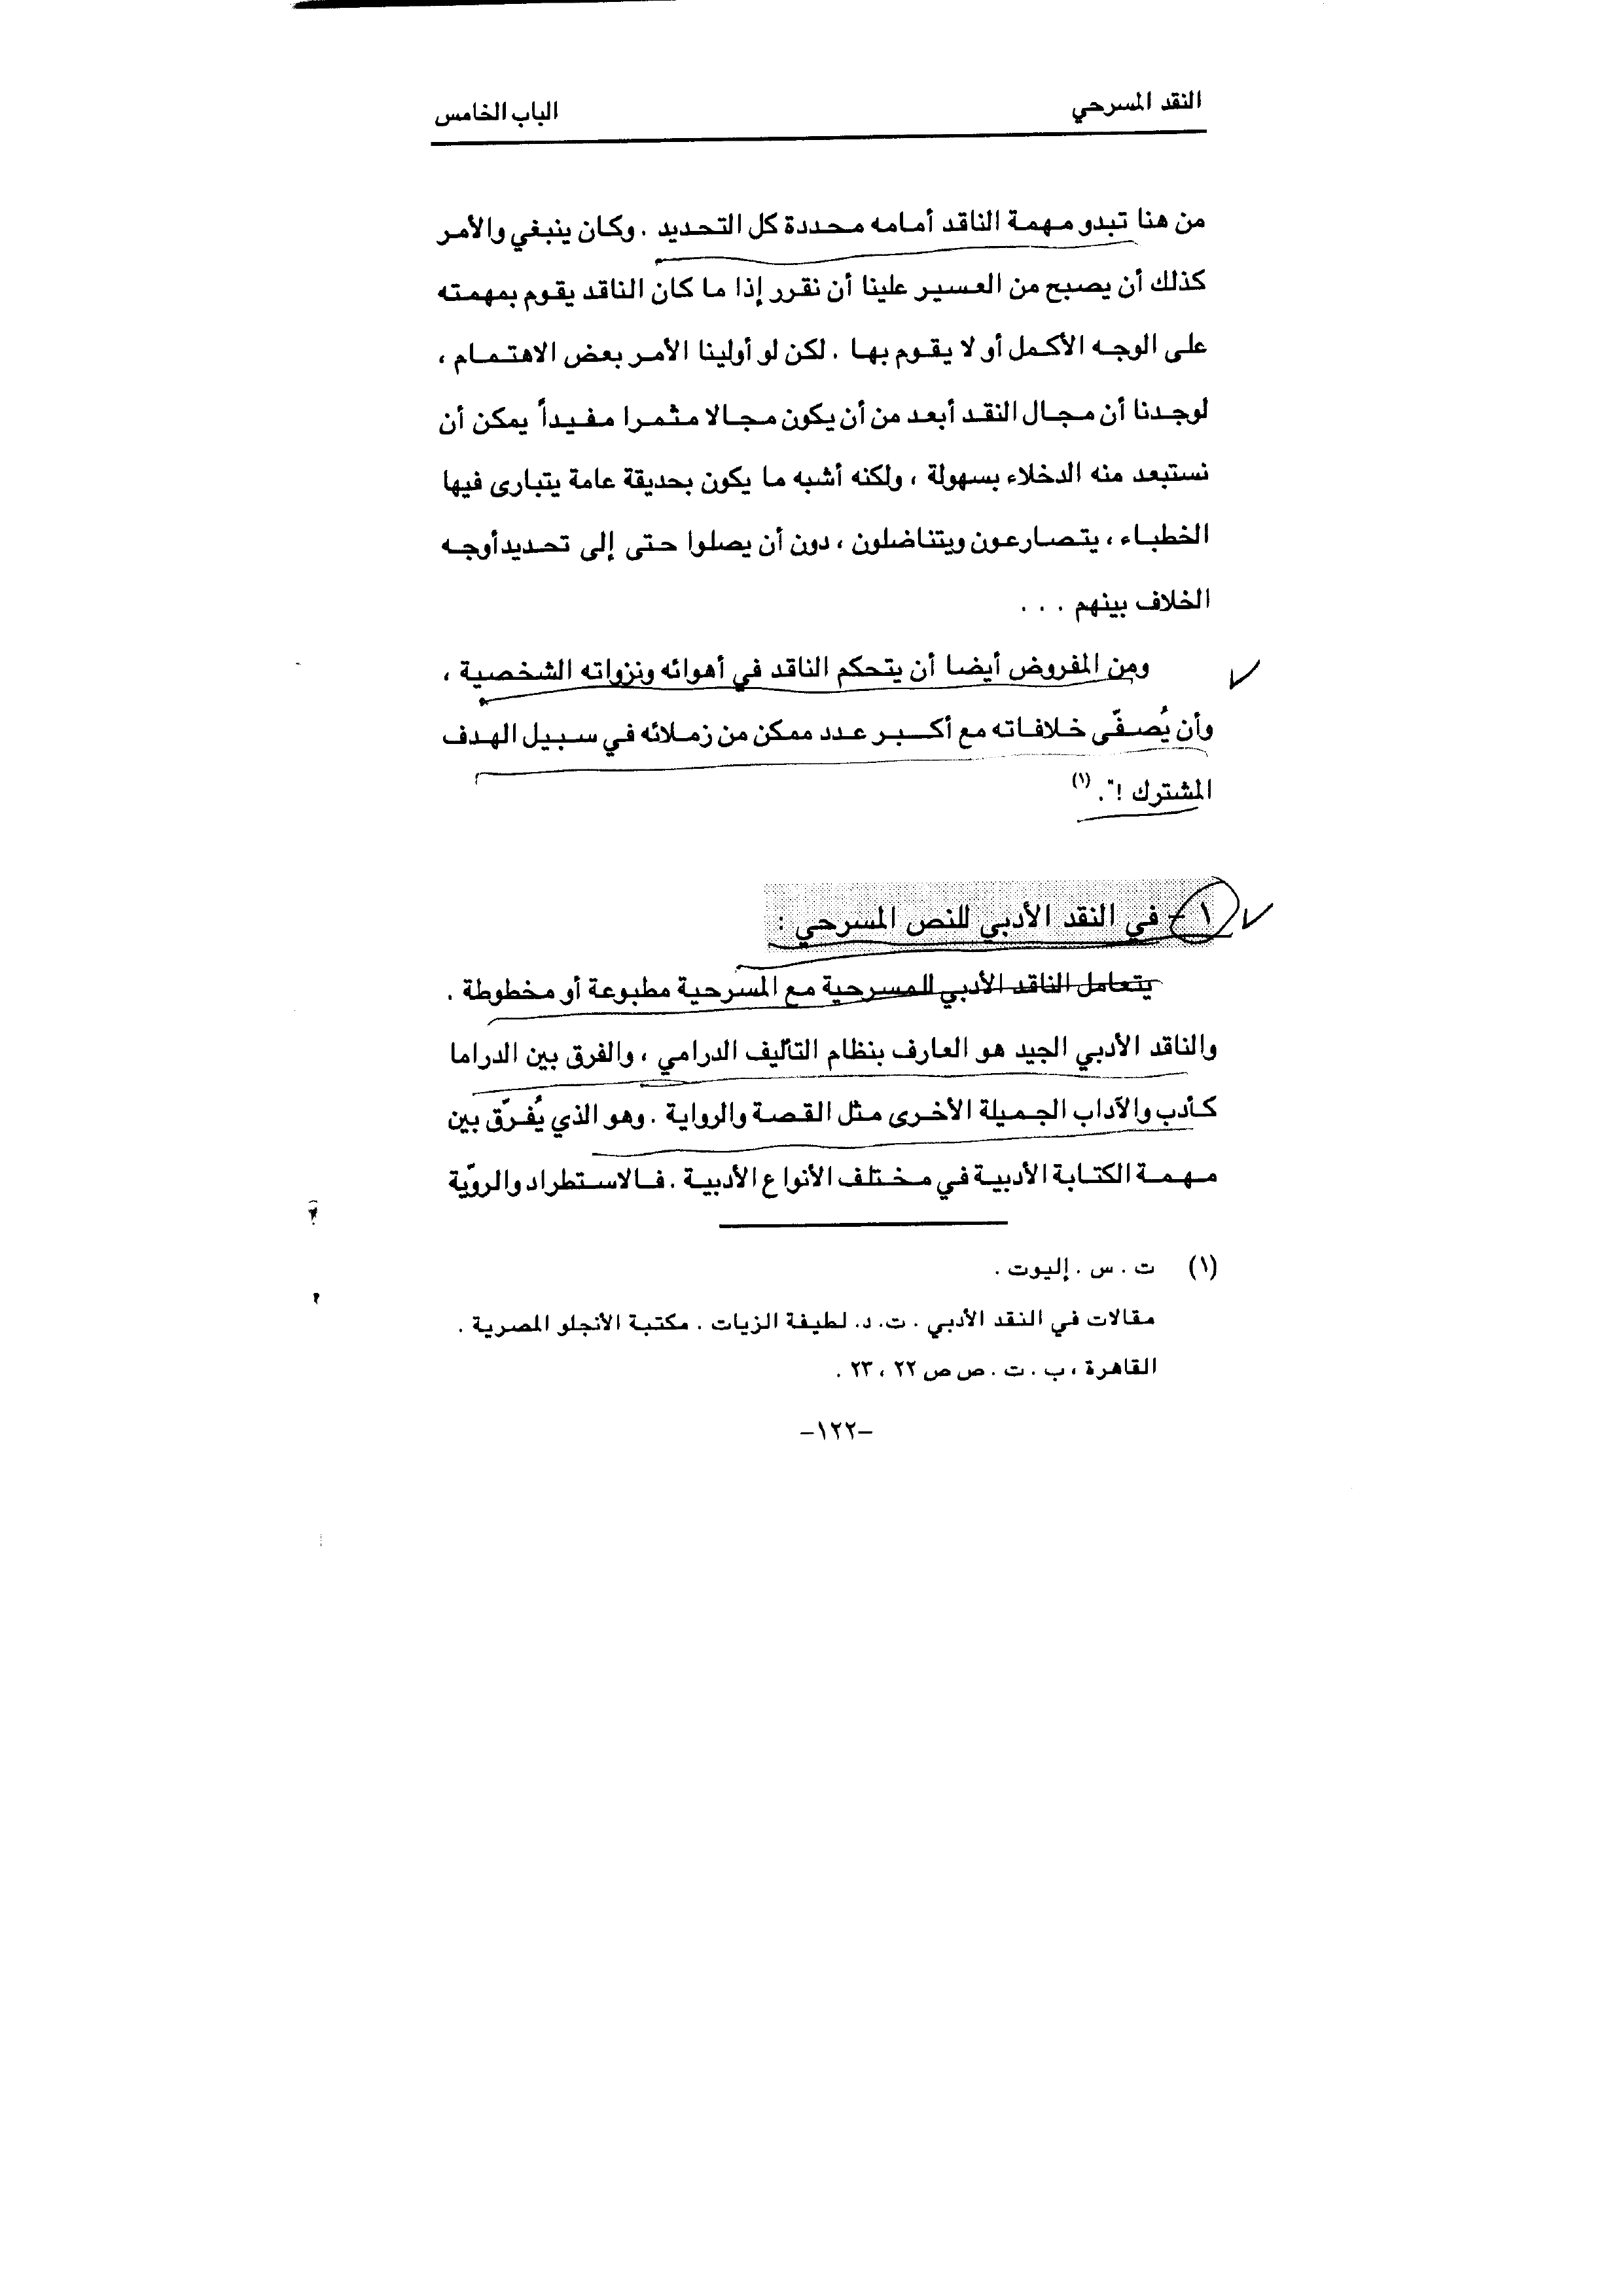 النقد المسرحي
الباب الخامس
من هنا تبدو مهمة الناقد أمامه محددة كل التحديد . وكان ينبغي والأمر
كذلك أن يصبح من العسير علينا أن نقرر إذا ما كان الناقد يقوم بمهمته
على الوجه الأكمل أو لا يقوم بها . لكن لو أولينا الأمر بعض الاهتمام ،
لوجدنا أن مجال النقد أبعد من أن يكون مجالا مثمرا مفيداً يمكن أن
نستبعد منه الدخلاء بسهولة ، ولكنه أشبه ما يكون بحديقة عامة يتبارى فيها
الخطباء ، يتصارعون ويتناضلون ، دون أن يصلوا حتى إلى تحديد أوجه
الخلاف بينهم . . .
ومن المفروض أيضا أن يتحكم الناقد في أهوائه ونزواته الشخصية ،
وأن يُصفّى خلافاته مع أكبر عدد ممكن من زملائه في سبيل الهدف
المشترك !" . (١)
١ - في النقد الأدبي للنص المسرحي :
يتعامل الناقد الأدبي للمسرحية مع المسرحية مطبوعة أو مخطوطة .
والناقد الأدبي الجيد هو العارف بنظام التأليف الدرامي ، والفرق بين الدراما
كأدب والآداب الجميلة الأخرى مثل القصة والرواية . وهو الذي يُفرّق بين
مهمة الكتابة الأدبية في مختلف الأنواع الأدبية . فالاستطراد والرويّة
(١) ت . س . إليوت .
مقالات في النقد الأدبي . ت. د. لطيفة الزيات . مكتبة الأنجلو المصرية .
القاهرة ، ب . ت . ص ص ٢٢ ، ٢٣ .
-١٢٢-